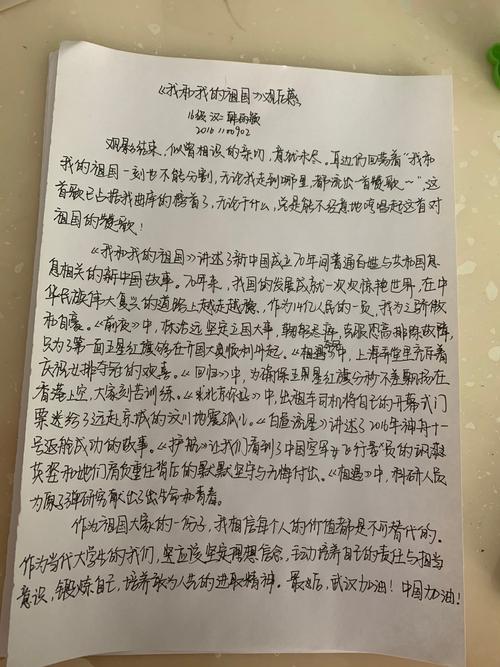 《我和我的祖国》观后感
16级 汉二
2016111100902
观影结束，似曾相识的亲切，意犹未尽。耳边仍回荡着“我和
我的祖国一刻也不能分割，无论我走到哪里，都流出一首赞歌~”。这
首歌已占据我曲库的榜首了，无论干什么，总是能不经意地哼唱起这首对
祖国的赞歌！
《我和我的祖国》讲述了新中国成立70年间普通百姓与共和国息
息相关的新中国故事。70年来，我国的发展成就一次次惊艳世界，在中
华民族伟大复兴的道路上越走越稳，作为14亿人民的一员，我为之骄傲
和自豪。《前夜》中，林治远坚定立国大事，克服恐高排除故障，
只为了第一面五星红旗能够在开国大典顺利升起。《相遇》中，上海弄堂里充斥着
庆祝女排夺冠的欢喜。《回归》中，为确保五星红旗分秒不差飘扬在
香港上空，大家刻苦训练。《北京你好》中，出租车司机将自己的开幕式门
票送给了远赴京城的汶川地震孤儿。《白昼流星》讲述了2016年神舟十一
号返航成功的故事。《护航》让我们看到了中国空军女飞行员的飒爽
英姿和她们肩负重任背后的默默坚守与无悔付出。《相遇》中，科研人员
为原子弹研究献出了生命和青春。
作为祖国大家的一份子，我相信每个人的价值都是不可替代的。
作为当代大学生的我们，坚定理想信念，主动培养自己的责任与担当
意识，锻炼自己，培养敢为人先的进取精神。最后，武汉加油！中国加油！